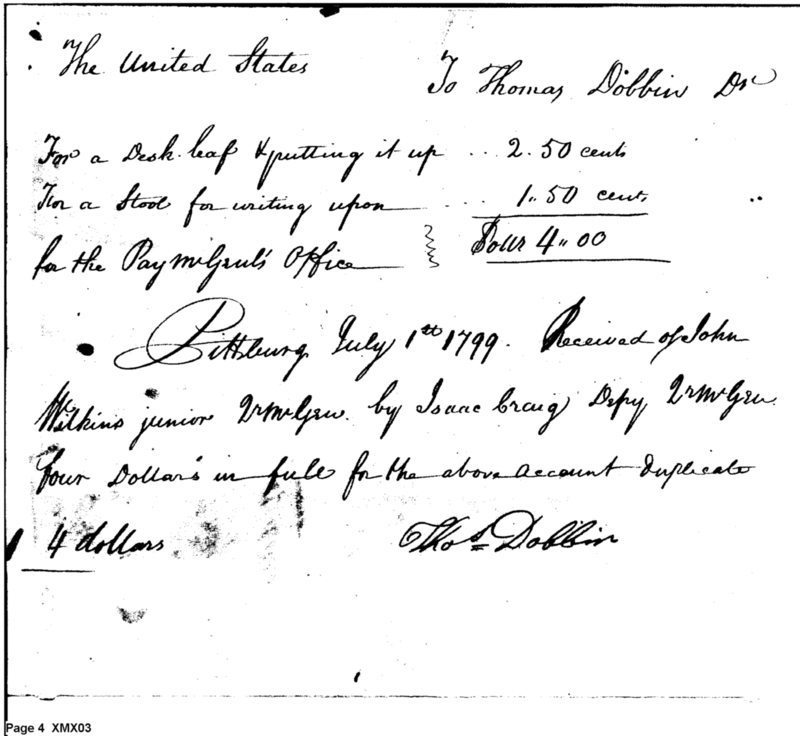 The United States To Thomas Dobbin Dr
For a Desk leaf & putting it up .. 2.50 cents
For a Stool for writing upon ... 1..50 cents
for the Pay Mr Genl's Office Dollr 4..00
Pittsburg July 1st 1799. Received of John
Wilkins junior Qr Mr Gen. by Isaac Craig Depy Qr Mr Gen.
four Dollars in full for the above account duplicate
4 dollars Thos Dobbin
Page 4 XMX03